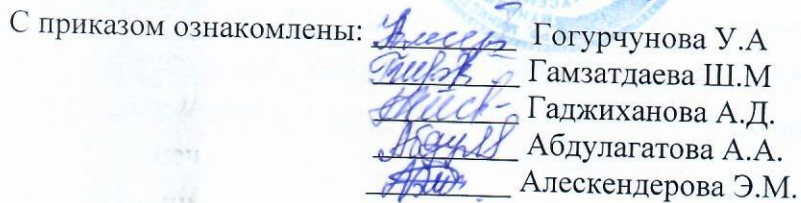 С приказом ознакомлены: Гогурчунова У.А
Гамзатдаева Ш.М
Гаджиханова А.Д.
Абдулагатова А.А.
Алескендерова Э.М.